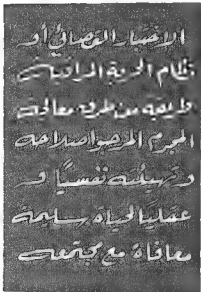 الاختبار القضائي أو
نظام الحرية المراقبة
طريقة من طرق معالجة
المجرم المرجو اصلاحه
وتهيئته نفسيًا و
عقليًا لحياة سليمة
معافاة مع مجتمعه